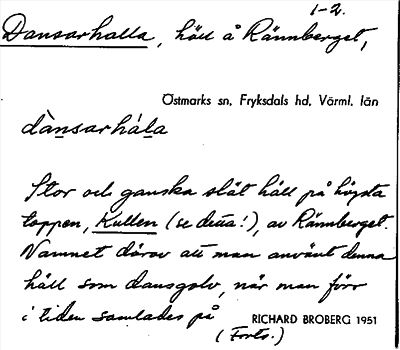 1-2.
Dansarhalla, häll å Rännberget,
Östmarks sn, Fryksdals hd, Värml. län
dànsarhál̲a̲
Stor och ganska slät häll på högsta
toppen, Kullen (se detta!), av Rännberget.
Namnet därav att man använt denna
häll som dansgolv, när man förr
i tiden samlades på RICHARD BROBERG 1951
(Forts.)